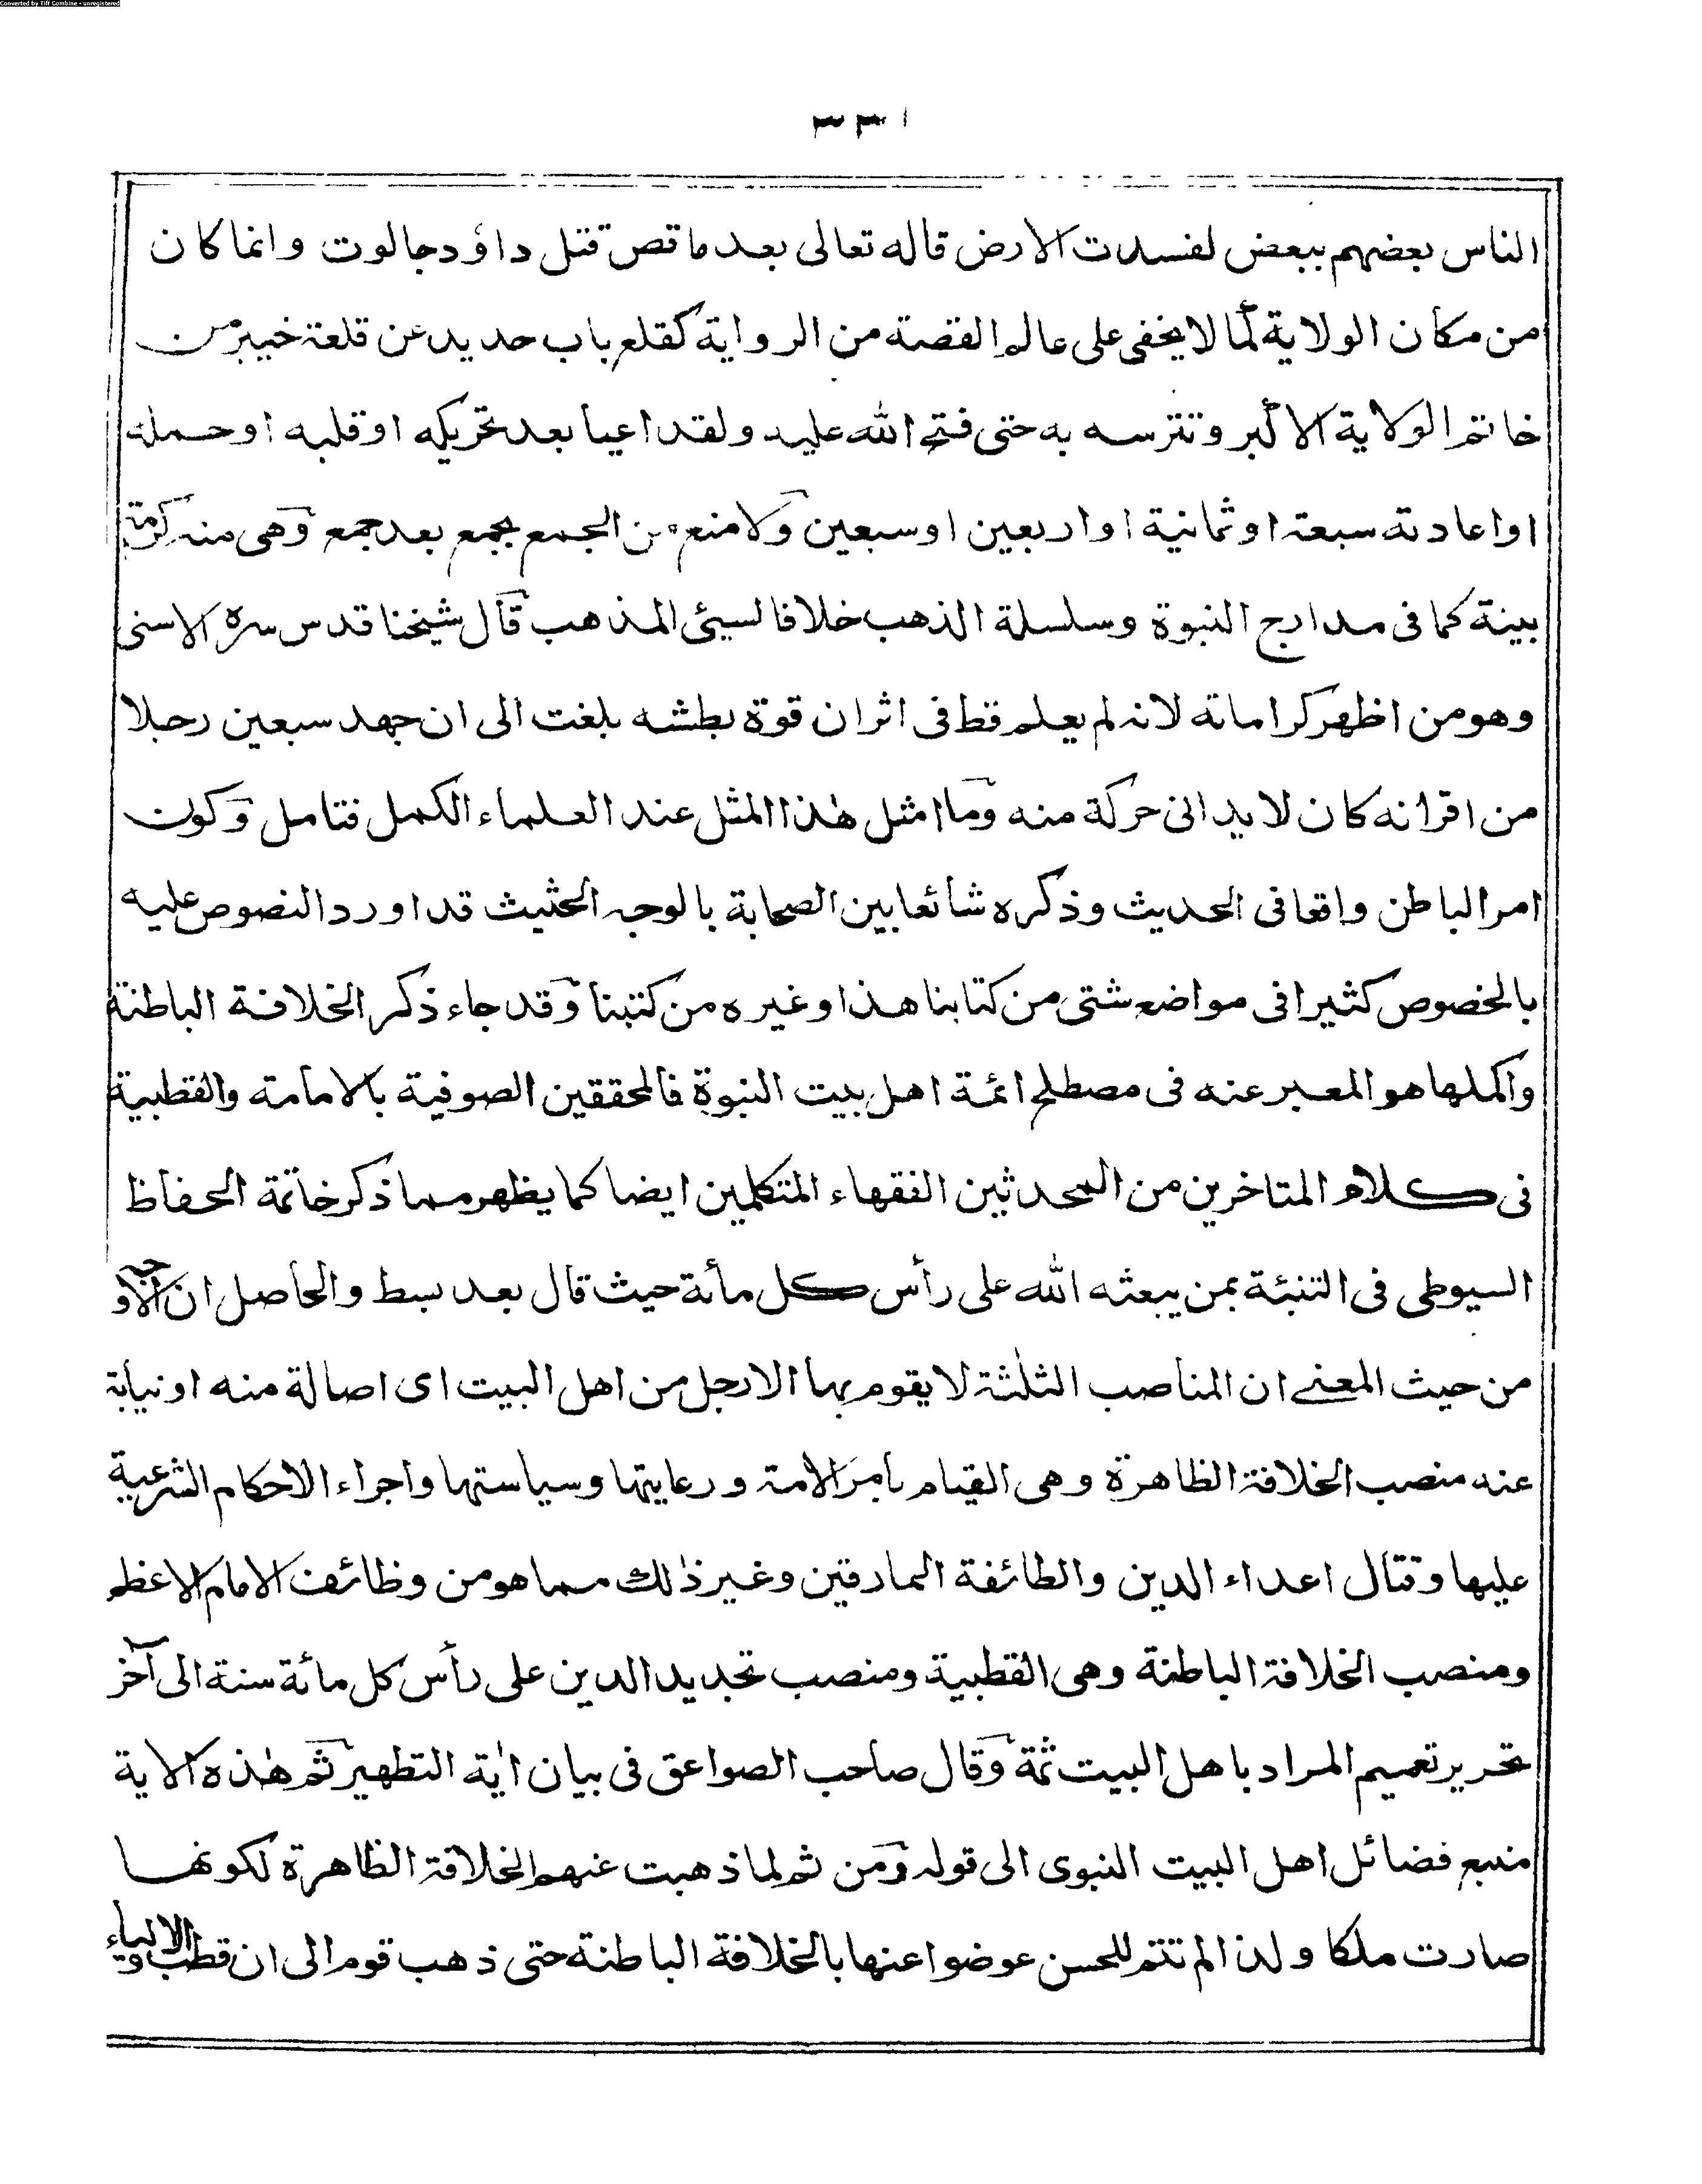 Converted by Tiff Combine - unregistered
٣٣١
الناس بعضهم ببعض لفسدت الارض قاله تعالى بعد ما قص قتل داؤد جالوت وانما كان
من مكان الولاية كما لا يخفى على عالم القصة من الرواية كقلع باب حديد عن قلعة خيبر من
خاتم الولاية الاكبر وتترسه به حتى فتح الله عليه ولقد اعيا بعد تحريكه او قلبه او حمله
او اعادته سبعة او ثمانية او اربعين او سبعين ولا منع من الجمع بجمع بعد جمع وهى منه كرامة
بينة كما فى مدارج النبوة وسلسلة الذهب خلافا لسيئ المذهب قال شيخنا قدس سره الاسنى
وهو من اظهر كراماته لانه لم يعلم قط فى اثر ان قوة بطشه بلغت الى ان جهد سبعين رجلا
من اقرانه كان لا يدانى حركة منه وما امثل هٰذا المثل عند العلماء الكمل فتامل وكون
امر الباطن واقعا فى الحديث وذكره شائعا بين الصحابة بالوجه الحثيث قد اورد النصوص عليه
بالخصوص كثيرا فى مواضع شتى من كتابنا هذا وغيره من كتبنا وقد جاء ذكر الخلافة الباطنة
واكملها هو المعبر عنه فى مصطلح ائمة اهل بيت النبوة فالمحققين الصوفية بالامامة والقطبية
فى كلام المتاخرين من المحدثين الفقهاء المتكلمين ايضا كما يظهر مما ذكر خاتمة الحفاظ
السيوطى فى التنبئة بمن يبعثه الله على رأس كل مأئة حيث قال بعد بسط والحاصل ان الاوجه
من حيث المعنے ان المناصب الثلٰثة لا يقوم بها الا رجل من اهل البيت اى اصالة منه او نيابة
عنه منصب الخلافة الظاهرة وهى القيام بامر الامة ورعايتها وسياستها واجراء الاحكام الشرعية
عليها وقتال اعداء الدين والطائفة المارقين وغير ذٰلك مما هو من وظائف الامام الاعظم
ومنصب الخلافة الباطنة وهى القطبية ومنصب تجديد الدين على رأس كل مائة سنة الى آخر
تحرير تعميم المراد باهل البيت ثمة وقال صاحب الصواعق فى بيان اٰية التطهير ثم هٰذه الاية
منبع فضائل اهل البيت النبوى الى قوله ومن ثم لما ذهبت عنهم الخلافة الظاهرة لكونها
صارت ملكا ولذا لم تتم للحسن عوضوا عنها بالخلافة الباطنة حتى ذهب قوم الى ان قطب الاولياء